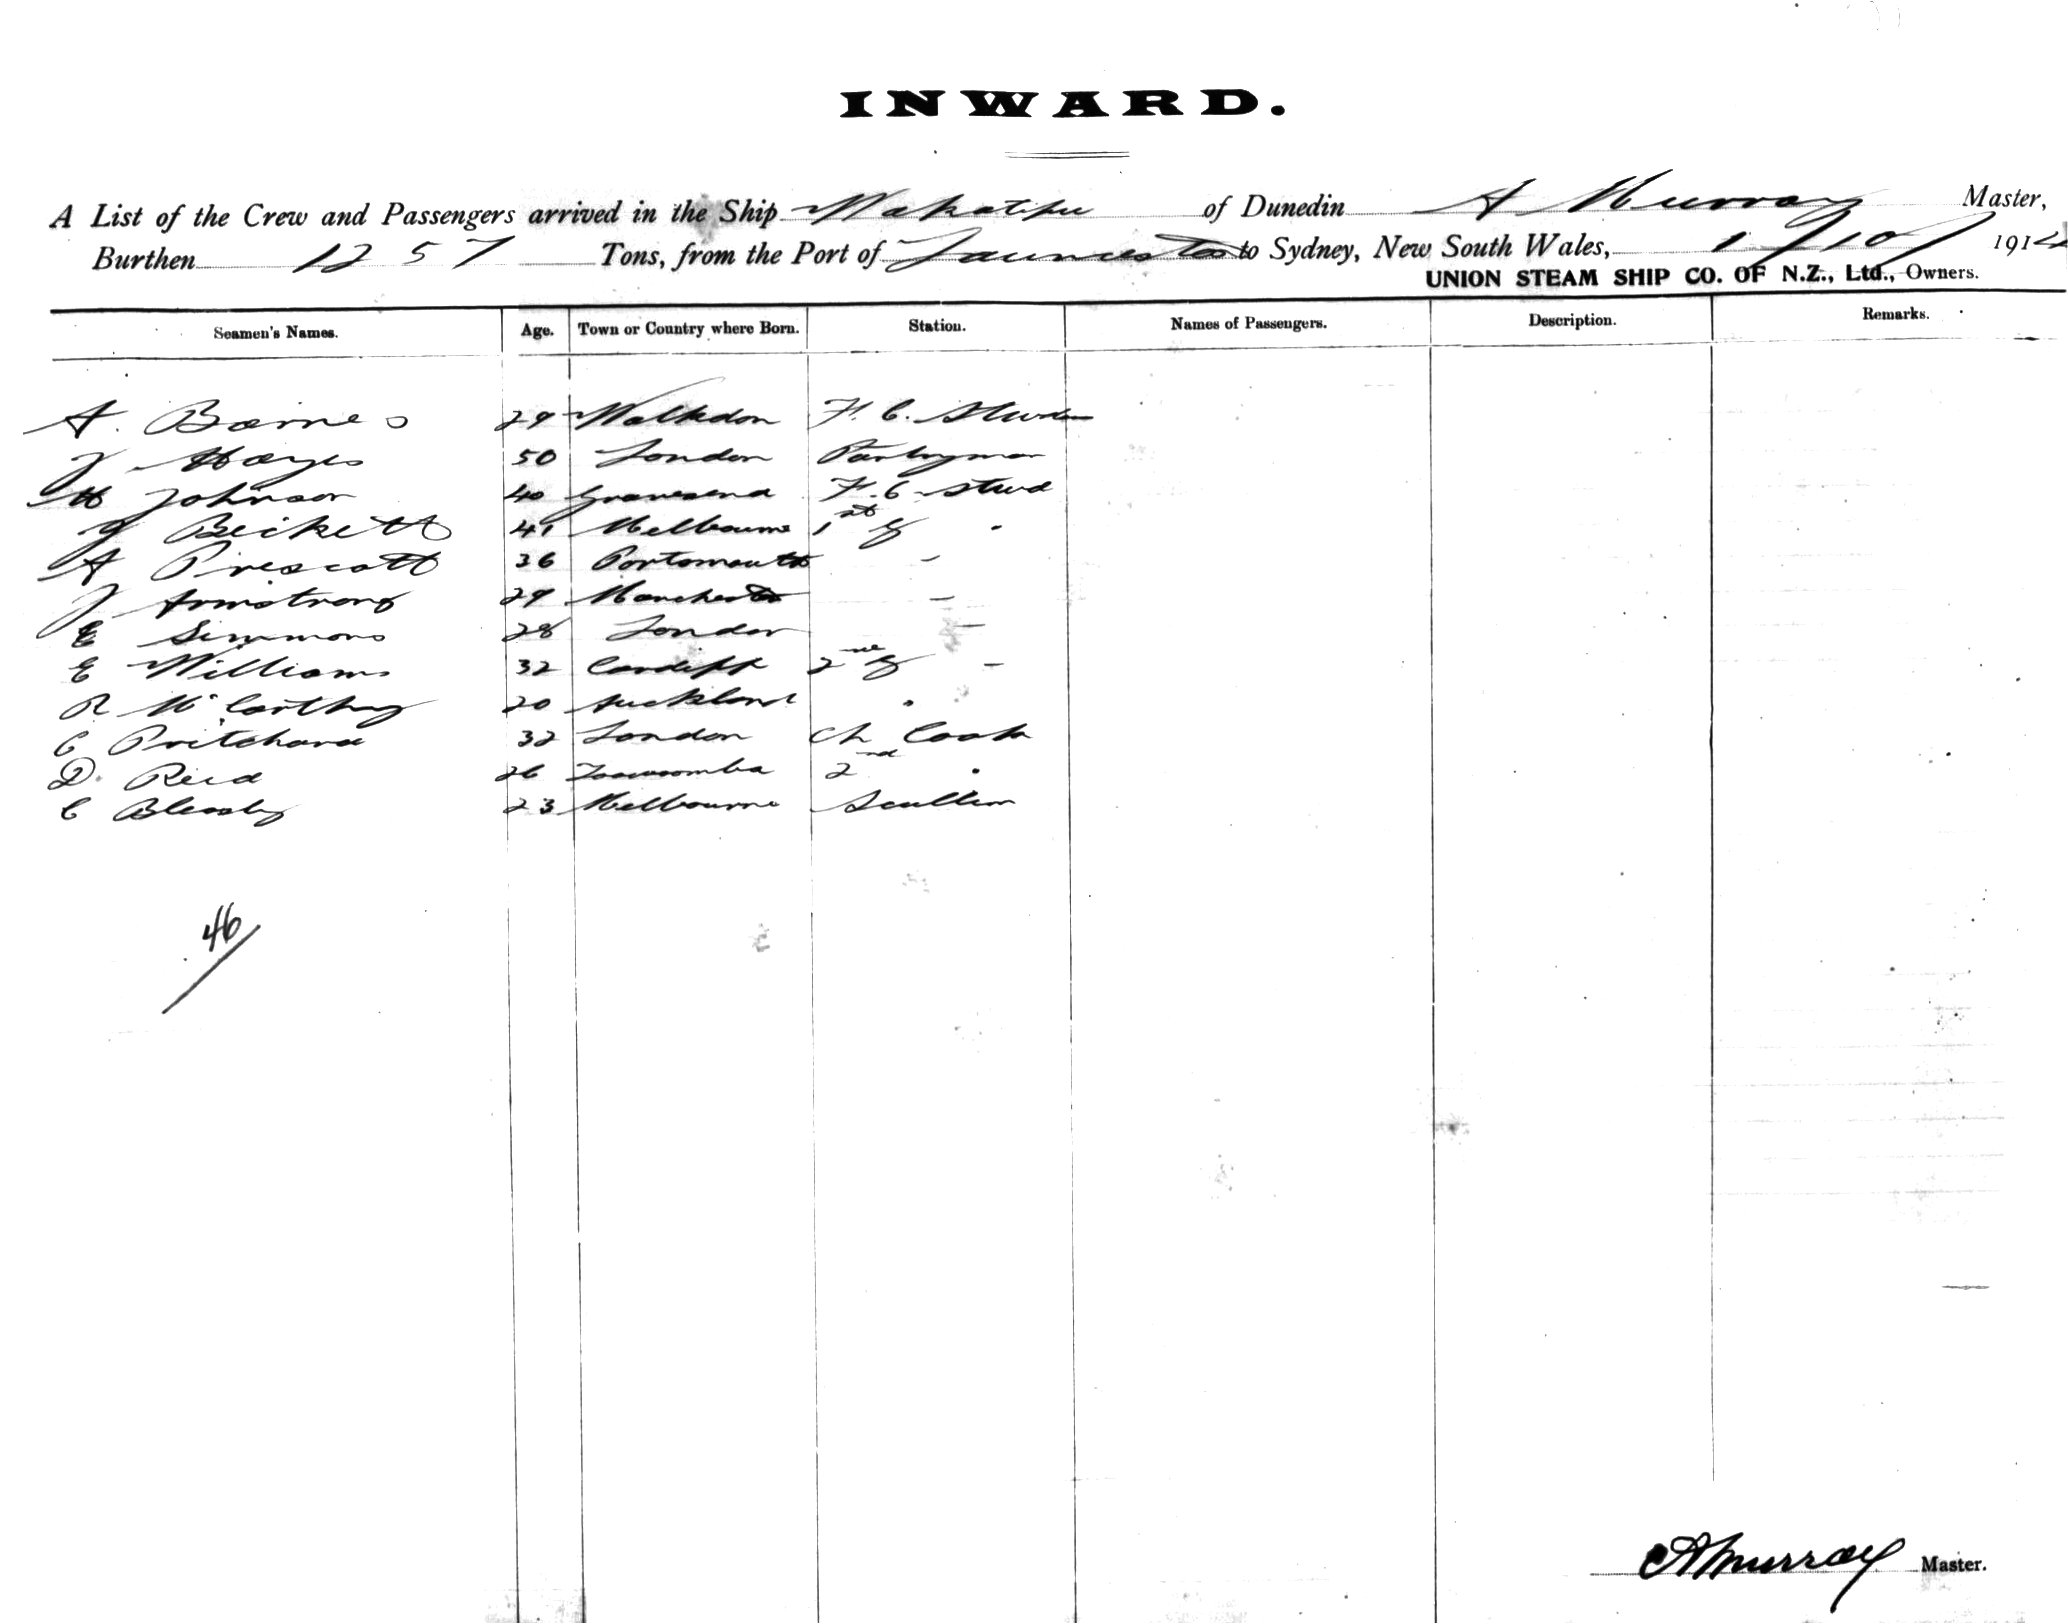 INWARD.
A List of the Crew and Passengers arrived in the Ship Wakatipu of Dunedin A Murray Master,
Burthen 1257 Tons, from the Port of Launceston to Sydney, New South Wales, 1/10/ 1914
UNION STEAM SHIP CO. OF N.Z., Ltd., Owners.
Seamen's Names. Age. Town or Country where Born. Station. Names of Passengers. Description. Remarks.
A. Barnes 29 F. C. Steward
J Hayes 50 London Pantryman
H Johnson 40 Gravesend F. C. Stwd
J Beckett 41 Melbourne 1st "
A Prescott 36 Portsmouth "
J Armstrong 29 Manchester "
E Simmons 28 London "
E Williams 32 Cardiff 2nd "
R McCarthy 20 Auckland "
C Pritchard 32 London Ch Cook
D. Reid 26 Toowoomba 2nd "
C 23 Melbourne Scullion
46
A Murray Master.